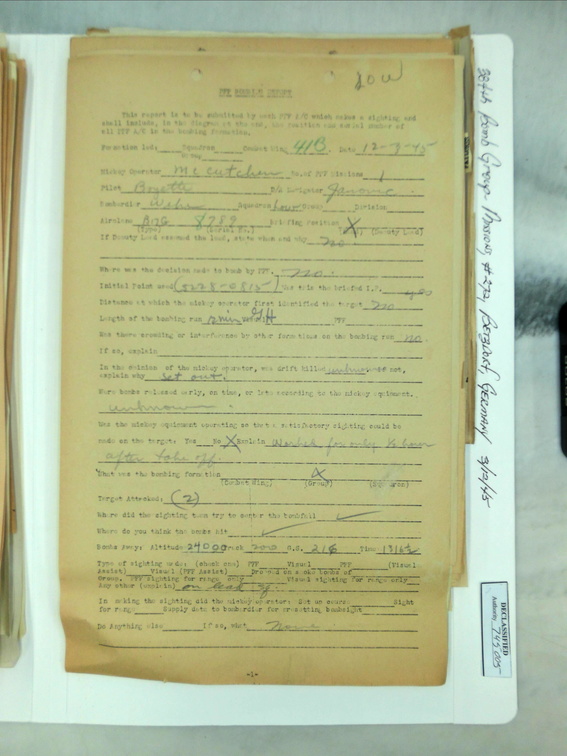 LOW
PFF BOMBING REPORT
This report is to be submitted by each PFF A/C which makes a sighting and
shall include, in the diagram at the end, the position and serial number of
all PFF A/C in the bombing formation.
Formation Led: Squadron Combat Wing 41B. Date 12-3-45
Group
Mickey Operator McCutchen No. of PFF Airplane 1
Pilot D/R Navigator
Bombardier Squadron Low Group Division
Airplane B17G 8789 Briefing Position X
(Type) (Serial No.) (Lead) (Deputy Lead)
If Deputy Lead assumed the lead, state when and why no.
Where was the decision made to bomb by PFF. no.
Initial Point used (5228-0815) Was this the briefed I.P. yes
Distance at which the mickey operator first identified the target no
Length of the bombing run GH PFF
Was there crowding or interference by other formations on the bombing run no.
If so, explain
In the opinion of the mickey operator, was drift killed unknown If not,
explain why Set out.
Were bombs released early, on time, or late according to the mickey equipment.
unknown.
Was the mickey equipment operating so that a satisfactory sighting could be
made on the target: Yes No X Explain Worked for only ½ hour
after take off.
What was the bombing formation X
(Combat Wing) (Group) (Squadron)
Target Attacked: (2)
Where did the sighting team try to center the bombfall
Where do you think the bombs hit
Bombs Away: Altitude 24000 Track G.S. 216 Time
Type of sighting made: (check one) PFF Visual PFF (Visual
Assist) Visual (PFF Assist) Dropped on smoke bombs of
Group. PFF sighting for range only Visual sighting for range only
Any other (explain) on lead
In making the sighting did the mickey operator: Set on course Sight
for range Supply data to bombardier for presetting bombsight
Do Anything else If so, what None
-1-
384th Bomb Group - Missions #292, Betzdorf, Germany 3/12/45
DECLASSIFIED
Authority 745005